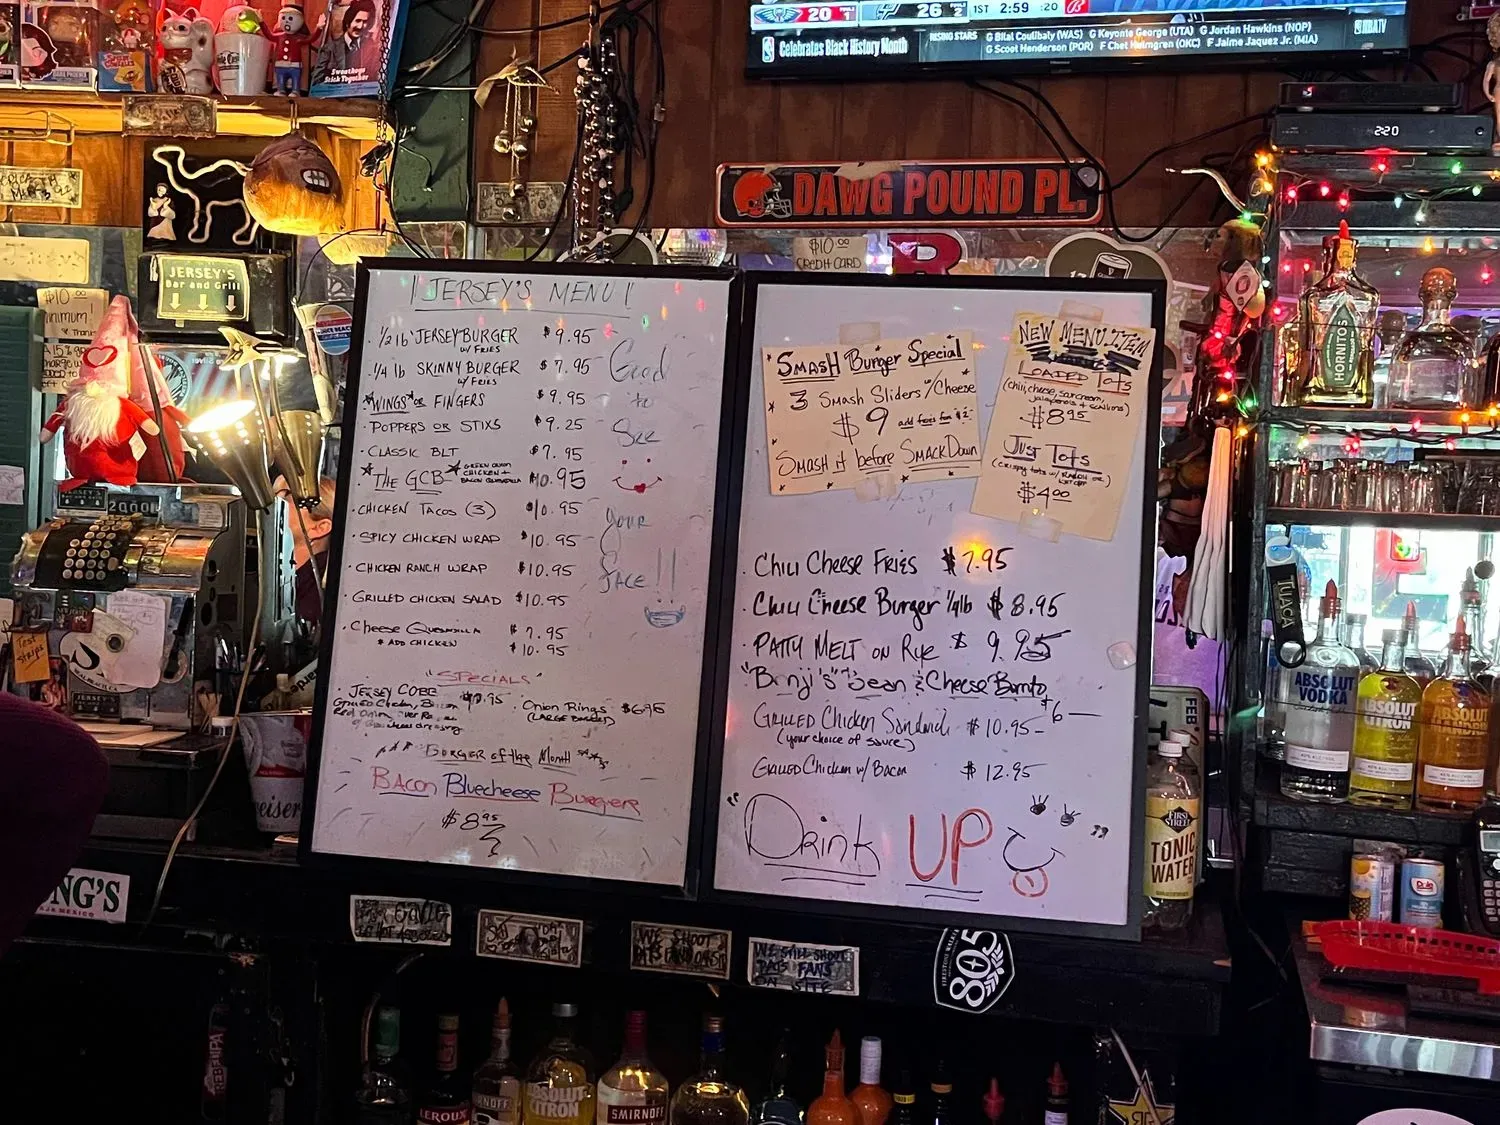 20
26
1ST
2:59
:20
Celebrates Black History Month
RISING STARS
G Bilal Coulibaly (WAS) G Keyonte George (UTA) G Jordan Hawkins (NOP)
G Scoot Henderson (POR) F Chet Holmgren (OKC) F Jaime Jaquez Jr. (MIA)
NBA TV
2:20
DAWG POUND PL.
$10.00
CREDIT CARD
JERSEY'S
Bar and Grill
$10.00
minimum!
"JERSEY'S MENU"
1/2 lb JERSEYBURGER $9.95
w/ FRIES
1/4 lb SKINNY BURGER $7.95
w/ FRIES
WINGS OR FINGERS $9.95
POPPERS OR STIXS $9.25
CLASSIC BLT $7.95
THE GCB GREEN ONION CHICKEN + BACON QUESADILLA $10.95
CHICKEN TACOS (3) $10.95
SPICY CHICKEN WRAP $10.95
CHICKEN RANCH WRAP $10.95
GRILLED CHICKEN SALAD $10.95
CHEESE QUESADILLA $7.95
* ADD CHICKEN $10.95
Good
to
See
your
FACE!!
"SPECIALS"
JERSEY COBB
Onion Rings $6.95
(LARGE BASKET)
BURGER of the Month
BACON Bluecheese Burgers
$8.95
SMASH Burger Special
3 Smash Sliders/Cheese
$9 add fries for $2
SMASH it before SMACKDOWN
NEW MENU ITEM
LOADED TOTS
(chili, cheese, sour cream,
jalapenos + scallions)
$8.95
JUST TOTS
(crispy tots w/ RANCH OR
KETCHUP)
$4.00
Chili Cheese Fries $7.95
Chili Cheese Burger 1/4lb $8.95
PATTY MELT ON Rye $9.95
"Benji's" Bean & Cheese Burrito
$6
GRILLED Chicken Sandwich $10.95
(your choice of sauce)
GRILLED Chicken w/ Bacon $12.95
"Drink UP"
FEB
HORNITOS
TUACA
ABSOLUT
VODKA
ABSOLUT
CITRON
ABSOLUT
FIRST
STREET
TONIC
WATER
Dole
Test
Strips
WE SHOOT
PATS FANS
WE STILL SHOOT
PATS FANS
ON SITE
805
LEROUX
ABSOLUT
CITRON
SMIRNOFF